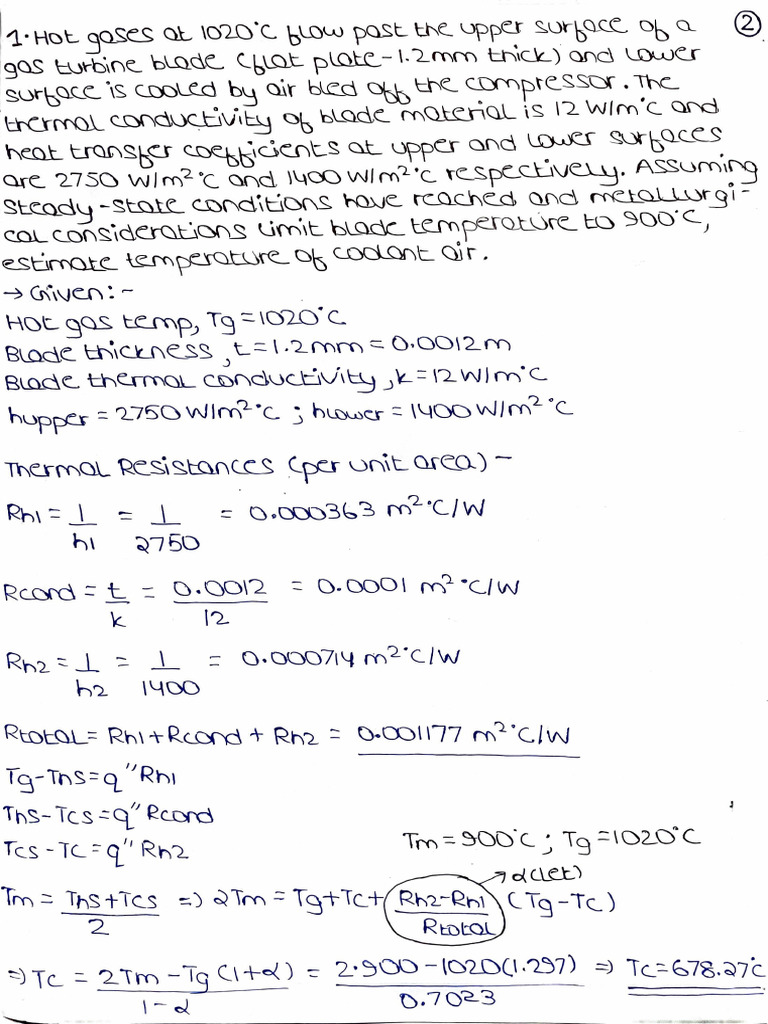 1. Hot gases at 1020°C flow past the upper surface of a ②
gas turbine blade (flat plate-1.2mm thick) and lower
surface is cooled by air bled off the compressor. The
thermal conductivity of blade material is 12 W/m°C and
heat transfer coefficients at upper and lower surfaces
are 2750 W/m²°C and 1400 W/m²°C respectively. Assuming
steady-state conditions have reached and metallurgi-
cal considerations limit blade temperature to 900°C,
estimate temperature of coolant air.
→ Given:-
Hot gas temp, Tg = 1020°C
Blade thickness, t = 1.2mm = 0.0012m
Blade thermal conductivity, k = 12 W/m°C
hupper = 2750 W/m²°C ; hlower = 1400 W/m²°C
Thermal Resistances (per unit area) -
Rh1 = 1/h1 = 1/2750 = 0.000363 m²°C/W
Rcond = t/k = 0.0012/12 = 0.0001 m²°C/W
Rh2 = 1/h2 = 1/1400 = 0.000714 m²°C/W
Rtotal = Rh1 + Rcond + Rh2 = 0.001177 m²°C/W
Tg - Ths = q"Rh1
Ths - Tcs = q"Rcond
Tcs - Tc = q"Rh2
Tm = 900°C ; Tg = 1020°C
→ α(let)
Tm = (Ths + Tcs)/2 ⇒ 2Tm = Tg + Tc + (Rh2 - Rh1)/Rtotal (Tg - Tc)
⇒ Tc = (2Tm - Tg(1+α))/(1-α) = (2·900 - 1020(1.297))/0.7023 ⇒ Tc = 678.27°C